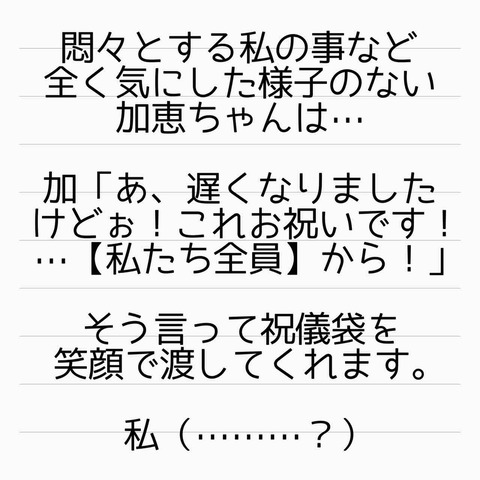 悶々とする私の事など
全く気にした様子のない
加恵ちゃんは…
加「あ、遅くなりました
けどぉ！これお祝いです！
…【私たち全員】から！」
そう言って祝儀袋を
笑顔で渡してくれます。
私（………？）